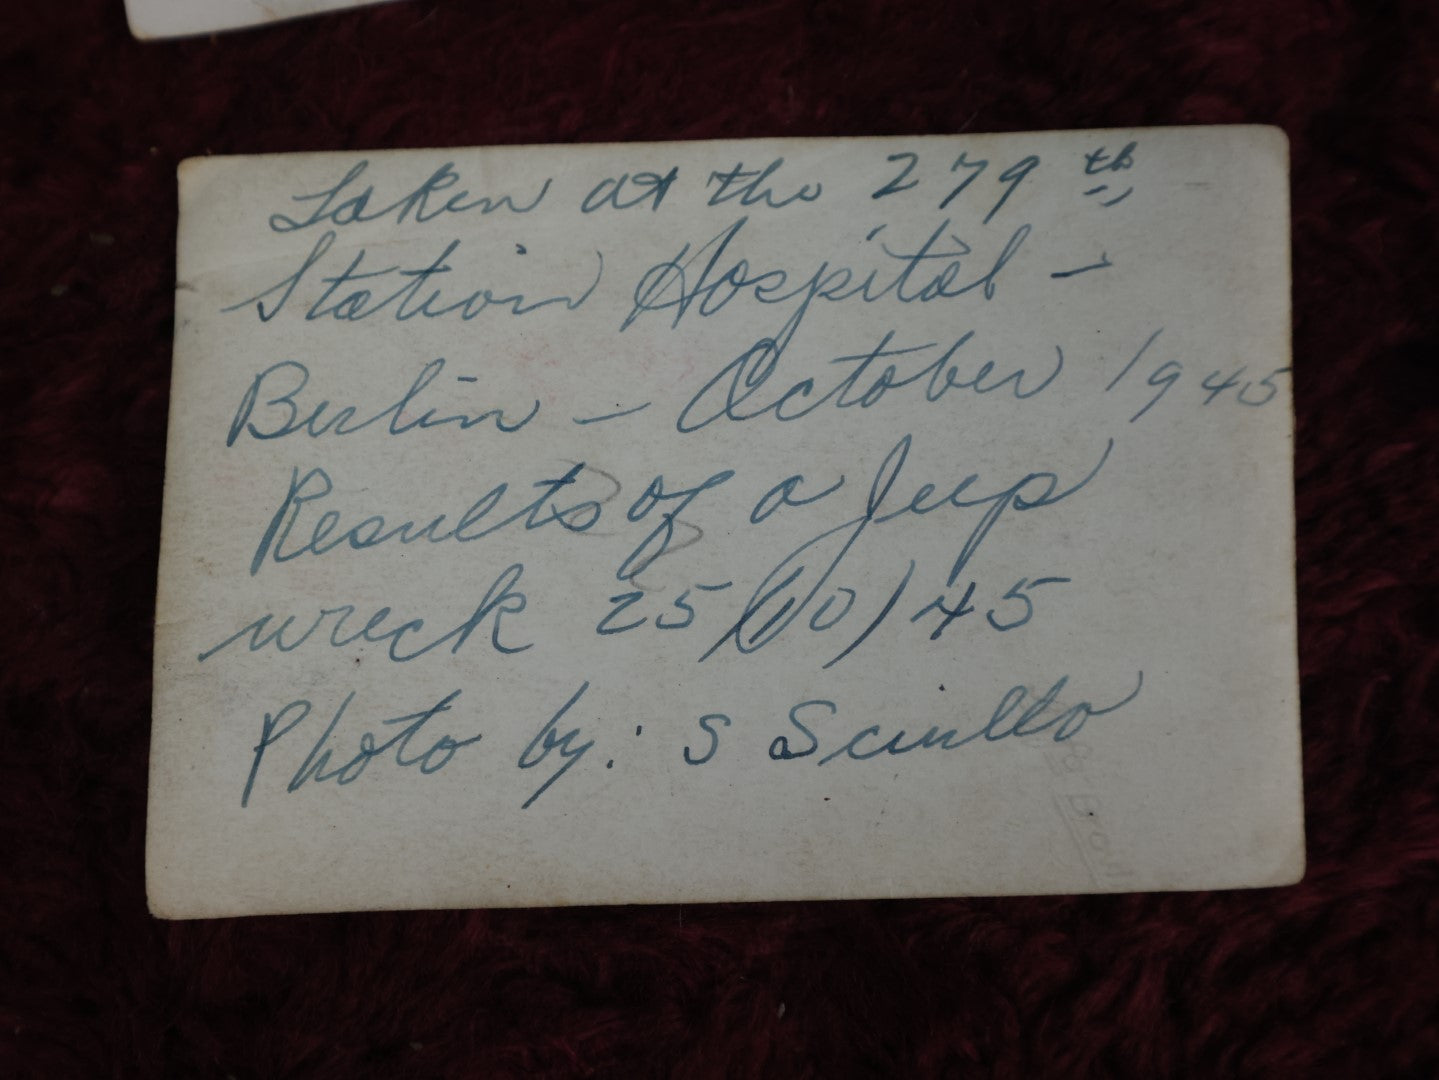 Taken at the 279th
Station Hospital -
Berlin - October 1945
Results of a Jeep
wreck 25/10/45
Photo by: S